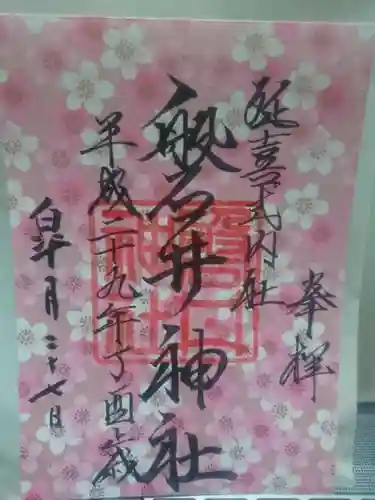 奉拝
延喜式内社
磐石井神社
平成二十九年丁酉歳
皐月二十七日